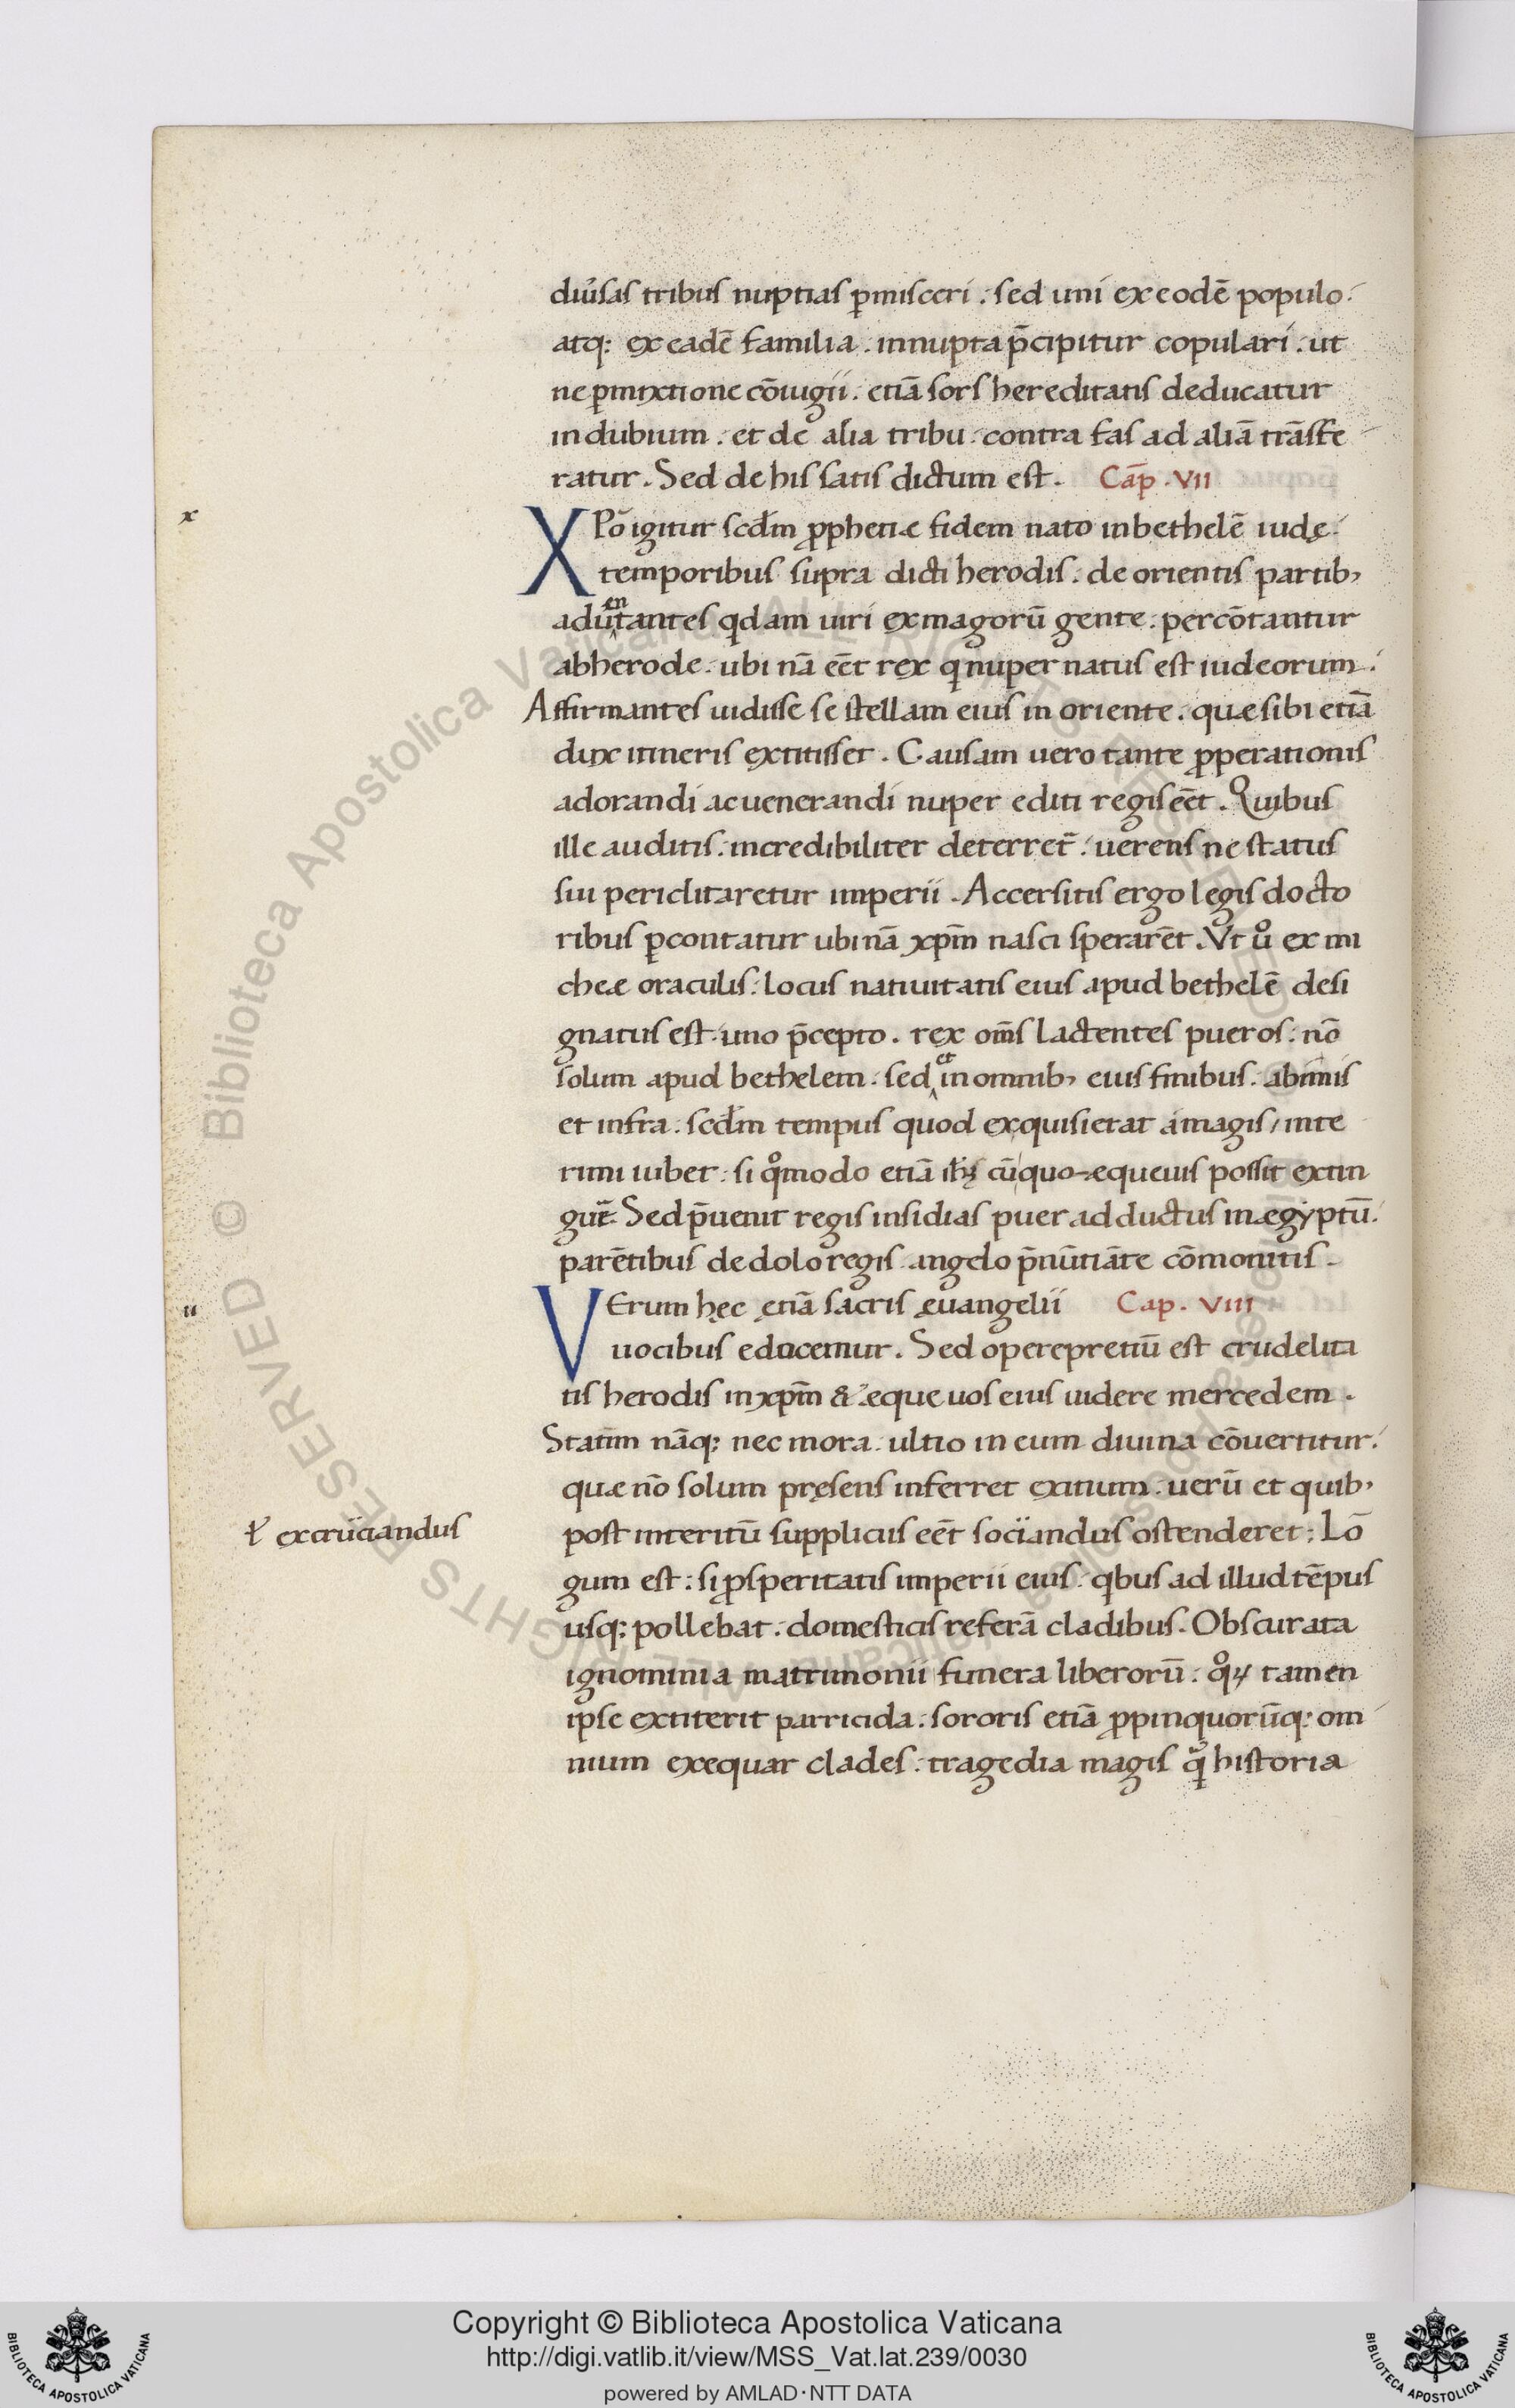 diu͛sas tribus nuptias ꝑmisceri . sed uni ex eodē populo .
atq; ex eadē familia . innupta p̄cipitur copulari . ut
ne ꝑmixtione cōiugii . etiā sors hereditatis deducatur
in dubium . et de alia tribu . contra fas ad aliā trāsfe
ratur . Sed de his satis dictum est . Cāp . VII
x
XPō igitur scd̄m ꝓphetiæ fidem nato in bethelē iudę .
temporibus supra dicti herodis . de orientis partib;
en
adūtantes qdam uiri ex magorū gente . percōtantur
ab herode . ubi nā eēt rex q nuper natus est iudeorum .
Affirmantes uidisse se stellam eius in oriente . quæ sibi etiā
dux itineris extitisset . Causam uero tante ꝓperationis
adorandi ac uenerandi nuper editi regis eēt . Quibus
ille auditis . incredibiliter deterret̄ . uerens ne status
sui periclitaretur imperii . Accersitis ergo legis docto
ribus ꝑcontatur ubi nā xp̄m nasci sperarēt . Vt uͦ ex mi
cheæ oraculis . locus natiuitatis eius apud bethelē desi
gnatus est . uno p̄cepto . rex om̄s lactentes pueros . nō
et
solum apud bethelem . sed in omnib; eius finibus . a bimis
et infra . scd̄m tempus quod exquisierat a magis / inte
rimi iubet . si qͦmodo etiā cū quo æqueuis possit extin
guēt̄ . Sed p̄uenit regis insidias puer adductus in ægyptū .
parētibus de dolo regis angelo p̄nūtiāte cōmonitis .
u
VErum hęc etiā sacris euangelii Cap . VIII
uocibus edocemur . Sed opere pretiū est crudelita
tis herodis in xp̄m & æqueuos eius uidere mercedem .
Statim nāq; nec mora . ultio in eum diuina cōuertitur .
quæ nō solum pręsens inferret exitium . uerū et quib;
ꝉ excruciandus
post interitū suppliciis eēt sociandus ostenderet ; Lō
gum est : si ꝓsperitatis imperii eius . qbus ad illud tēpus
usq; pollebat . domesticis referā cladibus . Obscurata
ignominia matrimonii funera liberorū . qͦꝝ tamen
ipse extiterit parricida . sororis etiā ꝓpinquorūq; om
nium exequar clades . tragedia magis qͣ̄ historia
Copyright © Biblioteca Apostolica Vaticana
http://digi.vatlib.it/view/MSS_Vat.lat.239/0030
powered by AMLAD·NTT DATA